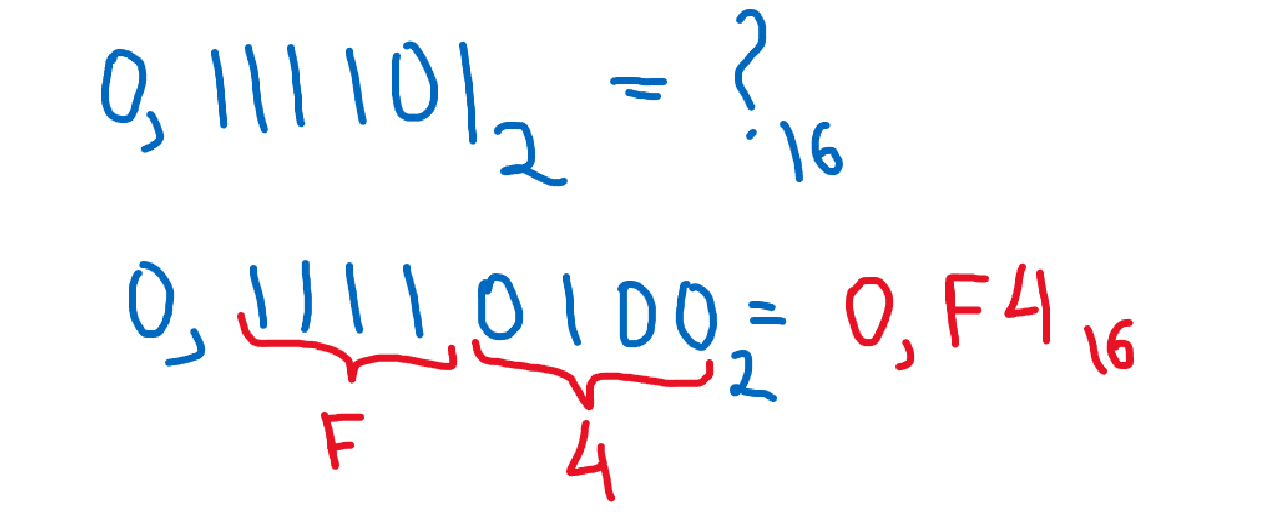 0,111101₂ = ?₁₆
0,11110100₂ = 0,F4₁₆
F 4